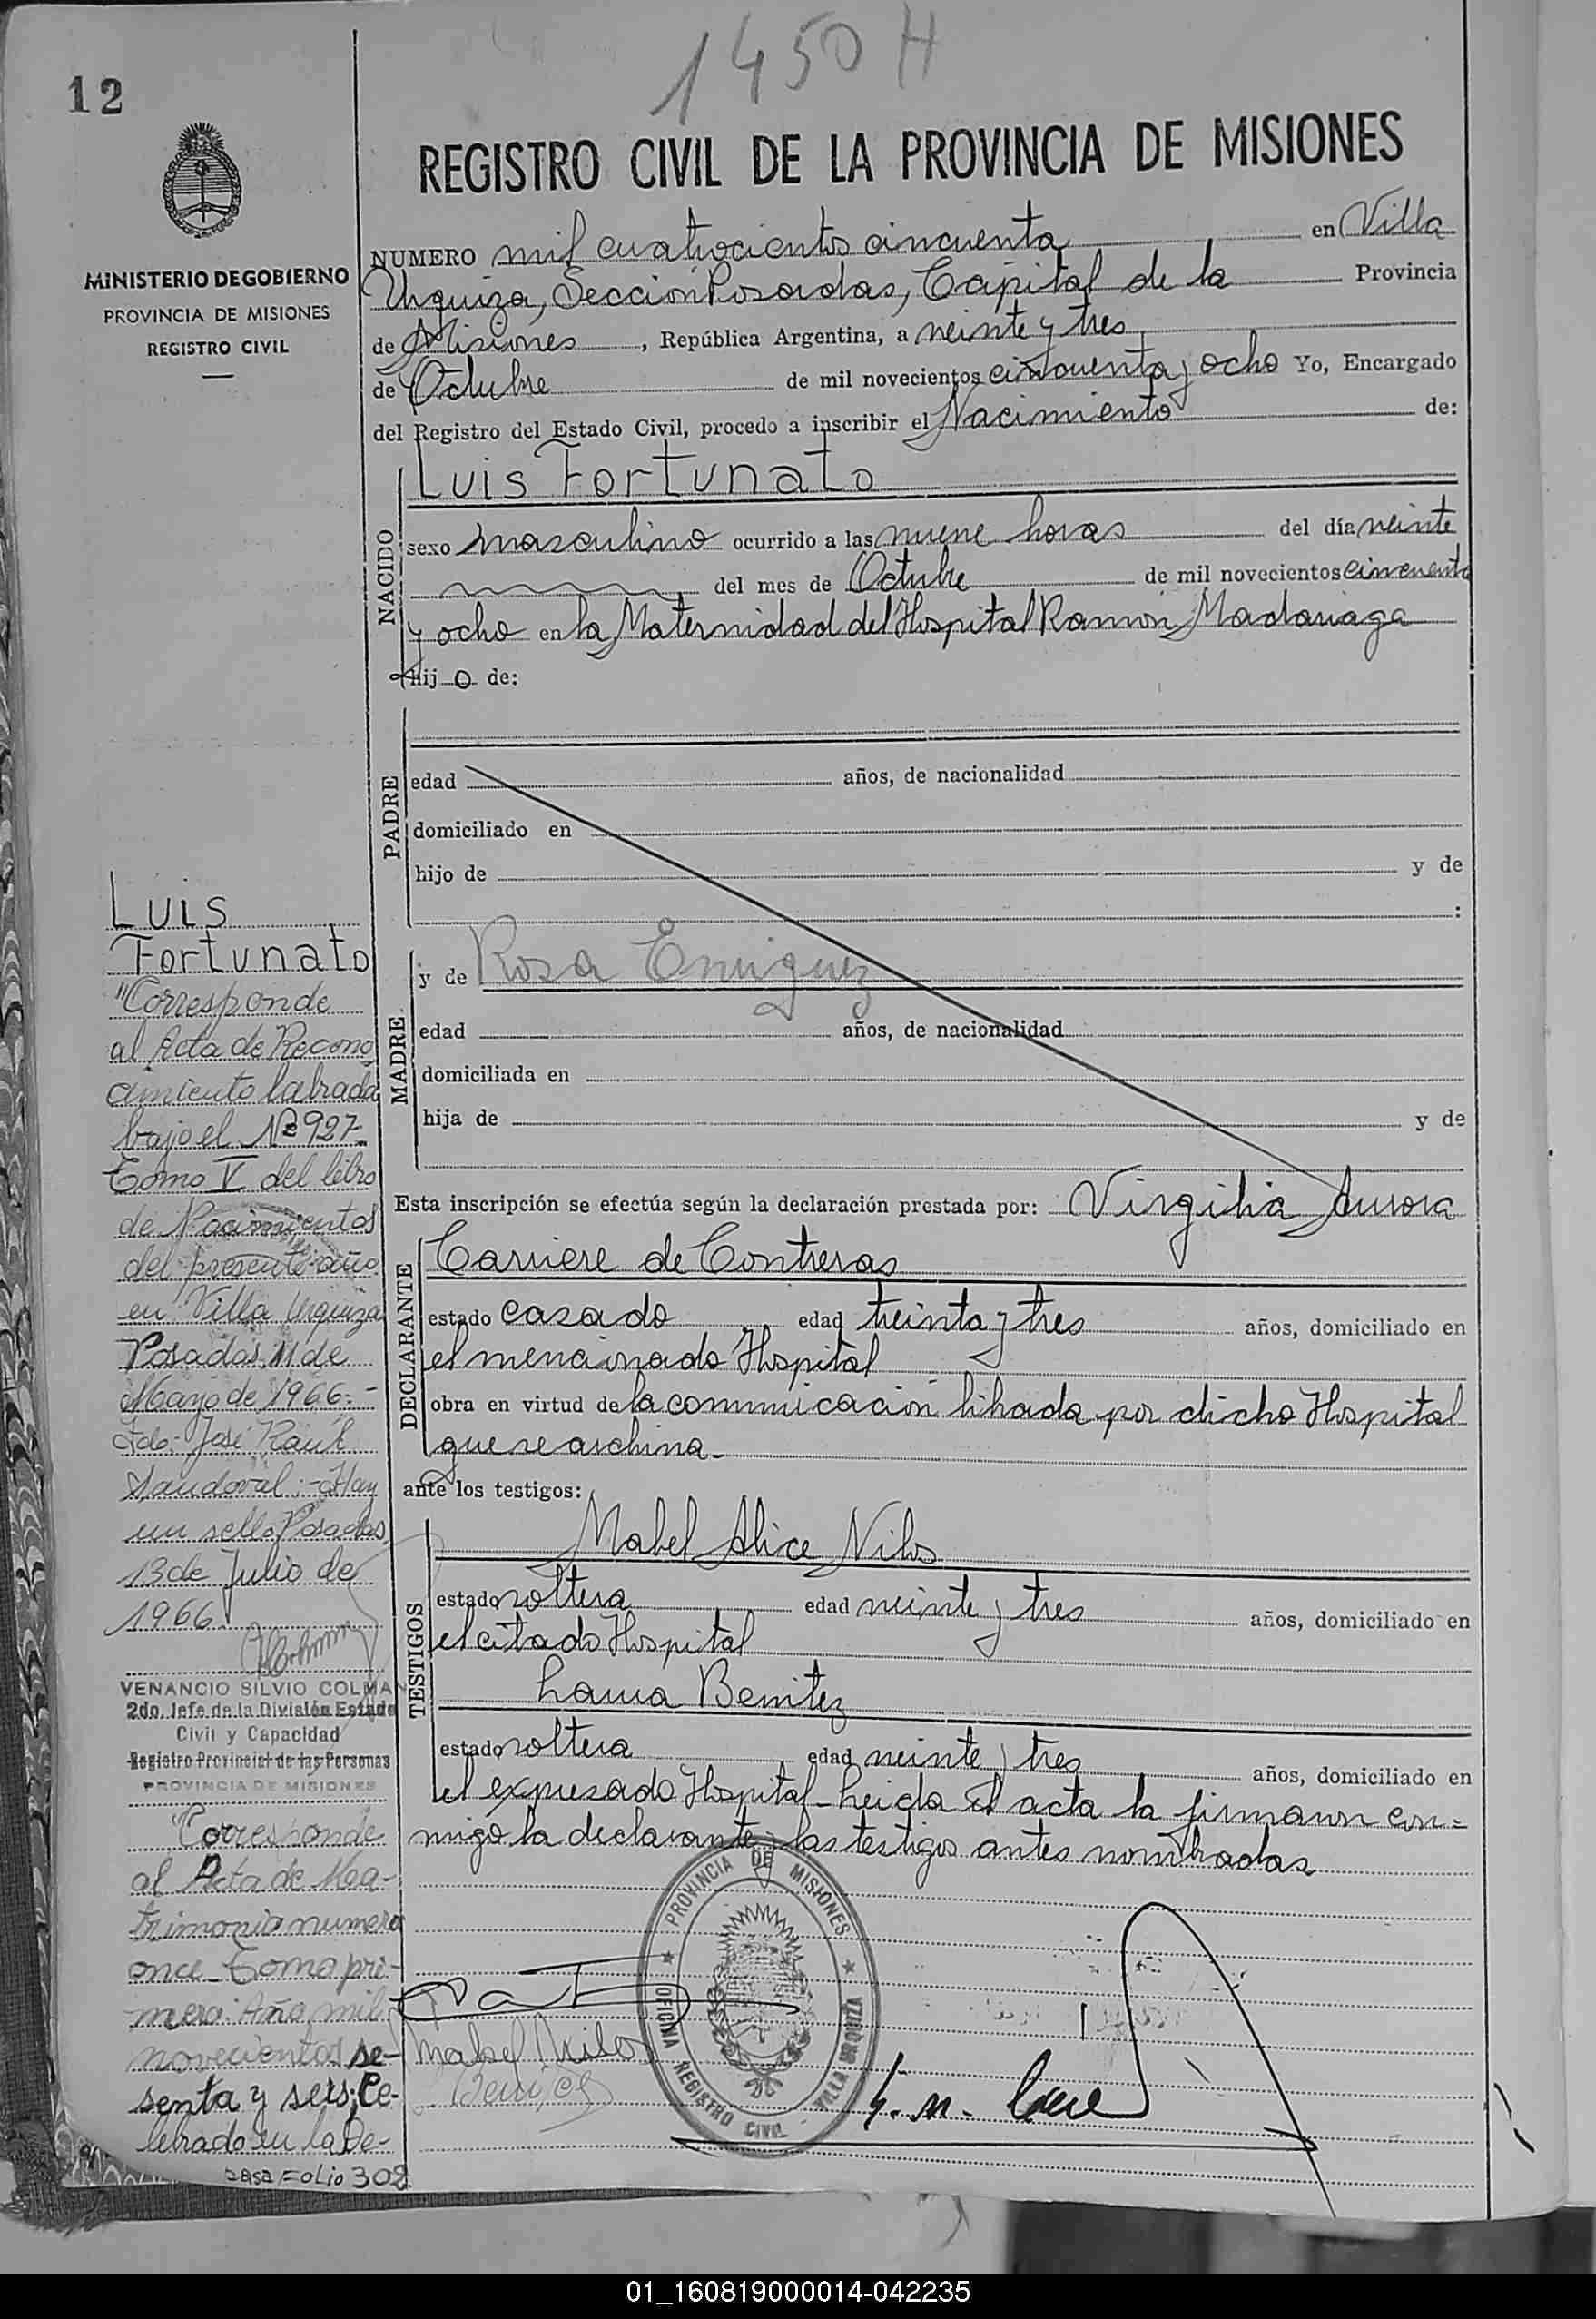 1450 H
12
REGISTRO CIVIL DE LA PROVINCIA DE MISIONES
MINISTERIO DE GOBIERNO
PROVINCIA DE MISIONES
REGISTRO CIVIL
NUMERO mil cuatrocientos cincuenta en Villa
Urquiza, Sección Posadas, Capital de la Provincia
de Misiones, República Argentina, a veinte y tres
de Octubre de mil novecientos cincuenta y ocho Yo, Encargado
del Registro del Estado Civil, procedo a inscribir el Nacimiento de:
NACIDO
Luis Fortunato
sexo masculino ocurrido a las nueve horas del día veinte
del mes de Octubre de mil novecientos cincuenta
y ocho en la Maternidad del Hospital Ramón Madariaga
hijo de:
PADRE
edad años, de nacionalidad
domiciliado en
hijo de y de
:
MADRE
y de Rosa Enriquez
edad años, de nacionalidad
domiciliada en
hija de y de
Esta inscripción se efectúa según la declaración prestada por: Virgilia Aurora
DECLARANTE
Carriere de Contreras
estado casado edad treinta y tres años, domiciliado en
el mencionado Hospital
obra en virtud de la comunicación librada por dicho Hospital
que se archiva.
ante los testigos:
TESTIGOS
Mabel Alice Nilos
estado soltera edad veinte y tres años, domiciliado en
el citado Hospital
Laura Benitez
estado soltera edad veinte y tres años, domiciliado en
el expresado Hospital. Leida el acta la firmaron con=
migo la declarante y las testigos antes nombradas
PROVINCIA DE MISIONES
OFICINA REGISTRO CIVIL - VILLA URQUIZA
Mabel Nilos
Benitez
Luis
Fortunato
"Corresponde
al Acta de Recono
cimiento labrada
bajo el Nº 927
Tomo V del libro
de Nacimientos
del presente año
en Villa Urquiza
Posadas, 11 de
Mayo de 1966.-
Fdo: José Raúl
Sandoval.- Hay
un sello. Posadas
13 de Julio de
1966.
VENANCIO SILVIO COLMA
2do. Jefe de la División Estado
Civil y Capacidad
Registro Provincial de las Personas
PROVINCIA DE MISIONES
"Corresponde
al Acta de Ma-
trimonio numero
once Tomo pri-
mero. Año mil
novecientos se-
senta y seis, Ce-
lebrado en la De-
pasa Folio 302
01_160819000014-042235